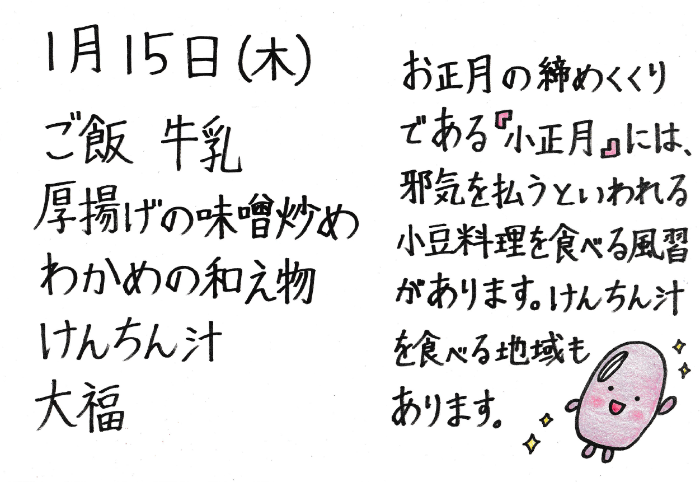 1月15日(木)
ご飯 牛乳
厚揚げの味噌炒め
わかめの和え物
けんちん汁
大福
お正月の締めくくり
である『小正月』には、
邪気を払うといわれる
小豆料理を食べる風習
があります。けんちん汁
を食べる地域も
あります。